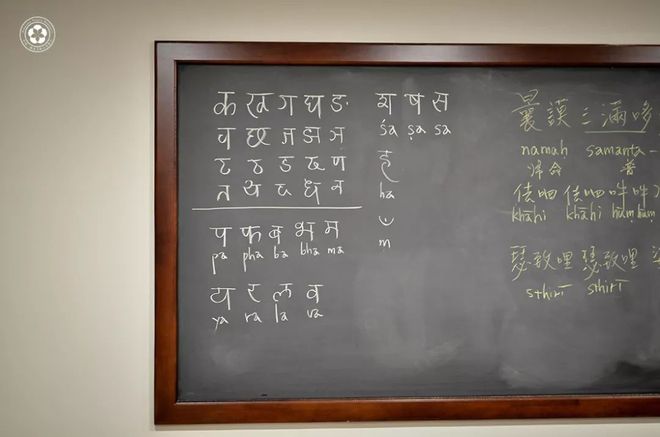 क ख ग घ ङ
च छ ज झ ञ
ट ठ ड ढ ण
त थ द ध न
प फ ब भ म
pa pha ba bha ma
य र ल व
ya ra la va
श ष स
śa ṣa sa
ha
ṃ
曩謨三滿哆
namaḥ samanta-
歸命 普
佉呬 佉呬 吽吽
khāhi khāhi hūṃ hūṃ
瑟致哩 瑟致哩
sthiri sthiri